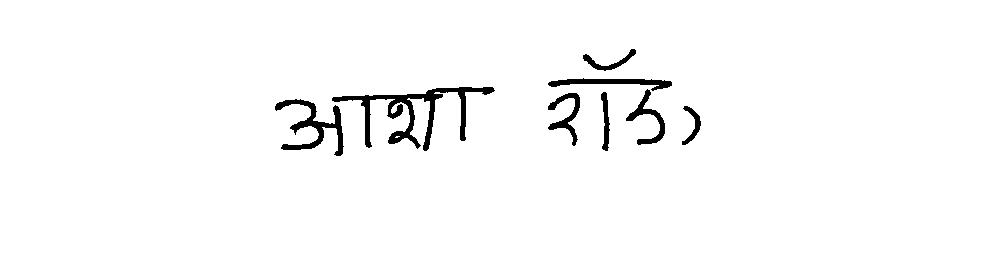 आशा रॉठ,